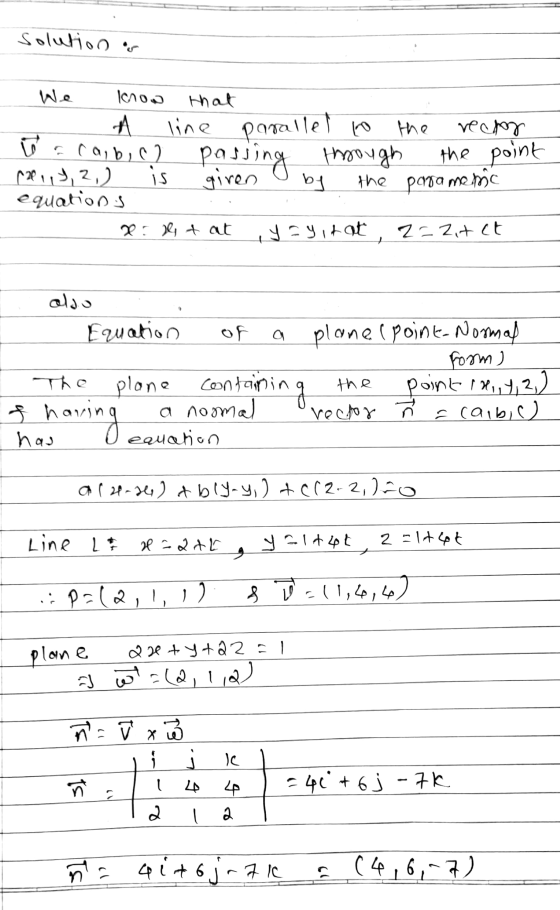 Solution :-
We know that
A line parallel to the vector
v⃗ = (a,b,c) passing through the point
(x₁,y,z₁) is given by the parametric
equations
x = x₁ + at , y = y₁ + at , z = z₁ + ct
also
Equation of a plane (point-Normal
form)
The plane containing the point (x₁,y,z₁)
& having a normal vector n⃗ = (a,b,c)
has equation
a(x-x₁) + b(y-y₁) + c(z-z₁) = 0
Line L : x = 2+t , y = 1+4t , z = 1+4t
∴ P = (2, 1, 1) & v⃗ = (1,4,4)
plane 2x + y + 2z = 1
⇒ w⃗ = (2,1,2)
n⃗ = v⃗ x w⃗
i j k
n⃗ = | 1 4 4 | = 4i + 6j - 7k
2 1 2
n⃗ = 4i + 6j - 7k = (4, 6, -7)